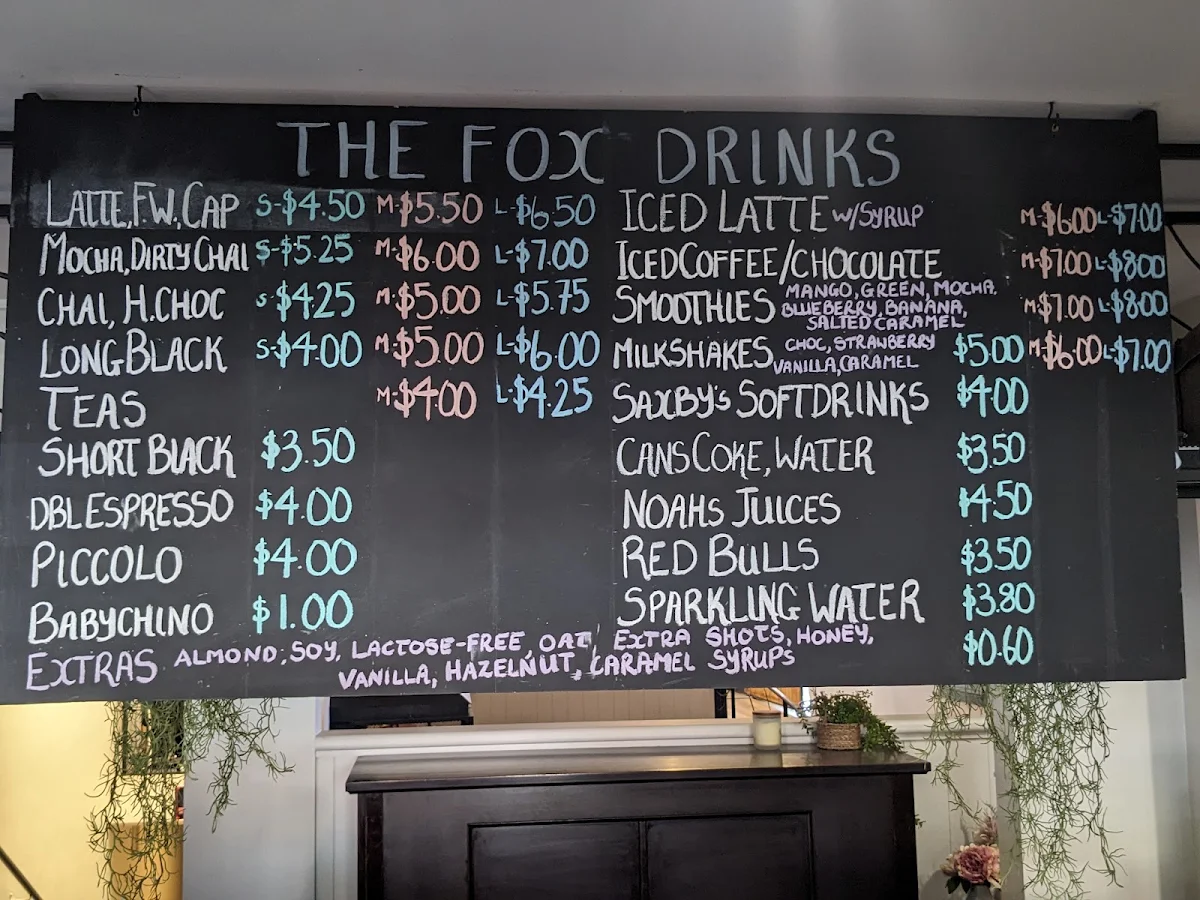 THE FOX DRINKS
LATTE, F.W, CAP S-$4.50 M-$5.50 L-$6.50
MOCHA, DIRTY CHAI S-$5.25 M-$6.00 L-$7.00
CHAI, H.CHOC S-$4.25 M-$5.00 L-$5.75
LONG BLACK S-$4.00 M-$5.00 L-$6.00
TEAS M-$4.00 L-$4.25
SHORT BLACK $3.50
DBL ESPRESSO $4.00
PICCOLO $4.00
BABYCHINO $1.00
ICED LATTE W/SYRUP M-$6.00 L-$7.00
ICED COFFEE/CHOCOLATE M-$7.00 L-$8.00
SMOOTHIES MANGO, GREEN, MOCHA, M-$7.00 L-$8.00
BLUEBERRY, BANANA,
SALTED CARAMEL
MILKSHAKES CHOC, STRAWBERRY $5.00 M-$6.00 L-$7.00
VANILLA, CARAMEL
SAXBY'S SOFTDRINKS $4.00
CANS COKE, WATER $3.50
NOAHS JUICES $4.50
RED BULLS $3.50
SPARKLING WATER $3.80
EXTRAS ALMOND, SOY, LACTOSE-FREE, OAT, EXTRA SHOTS, HONEY, $0.60
VANILLA, HAZELNUT, CARAMEL SYRUPS